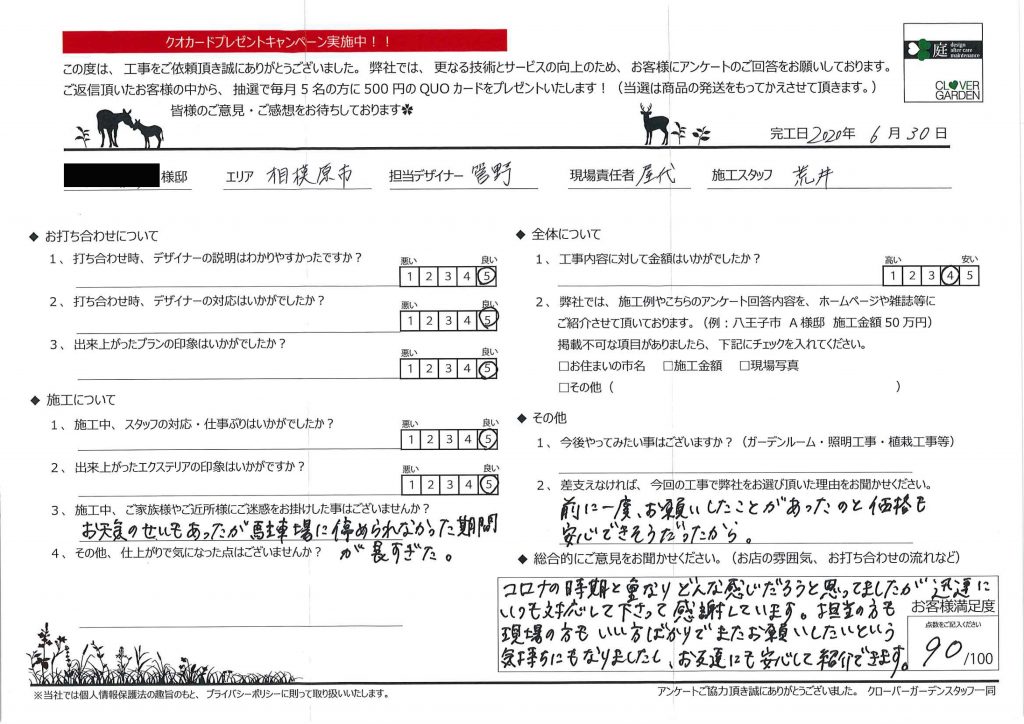 クオカードプレゼントキャンペーン実施中！！
この度は、工事をご依頼頂き誠にありがとうございました。弊社では、更なる技術とサービスの向上のため、お客様にアンケートのご回答をお願いしております。
ご返信頂いたお客様の中から、抽選で毎月5名の方に500円のQUOカードをプレゼントいたします！（当選は商品の発送をもってかえさせて頂きます。）
皆様のご意見・ご感想をお待ちしております✿
庭 design after care maintenance
CLOVER GARDEN
完工日 2020年 6月 30日
様邸 エリア 相模原市 担当デザイナー 菅野 現場責任者 屋代 施工スタッフ 荒井
◆ お打ち合わせについて
1、打ち合わせ時、デザイナーの説明はわかりやすかったですか？
悪い 良い
1 2 3 4 5
2、打ち合わせ時、デザイナーの対応はいかがでしたか？
悪い 良い
1 2 3 4 5
3、出来上がったプランの印象はいかがでしたか？
悪い 良い
1 2 3 4 5
◆ 施工について
1、施工中、スタッフの対応・仕事ぶりはいかがでしたか？
悪い 良い
1 2 3 4 5
2、出来上がったエクステリアの印象はいかがですか？
悪い 良い
1 2 3 4 5
3、施工中、ご家族様やご近所様にご迷惑をお掛けした事はございませんか？
お天気のせいもあったが馬車場に停められなかった期間
が長すぎた。
4、その他、仕上がりで気になった点はございませんか？
◆ 全体について
1、工事内容に対して金額はいかがでしたか？
高い 安い
1 2 3 4 5
2、弊社では、施工例やこちらのアンケート回答内容を、ホームページや雑誌等に
ご紹介させて頂いております。（例：八王子市 A様邸 施工金額50万円）
掲載不可な項目がありましたら、下記にチェックを入れてください。
□お住まいの市名 □施工金額 □現場写真
□その他（ ）
◆ その他
1、今後やってみたい事はございますか？（ガーデンルーム・照明工事・植栽工事等）
2、差支えなければ、今回の工事で弊社をお選び頂いた理由をお聞かせください。
前に一度、お願いしたことがあったのと価格も
安心できそうだったから。
◆ 総合的にご意見をお聞かせください。（お店の雰囲気、お打ち合わせの流れなど）
コロナの時期と重なりどんな感じだろうと思ってましたが迅速に
いつも対応して下さって感謝しています。担当の方も
現場の方もいい方ばかりでまたお願いしたいという
気持ちにもなりましたし、お友達にも安心して紹介できます。
お客様満足度
点数をご記入ください
90/100
※当社では個人情報保護法の趣旨のもと、プライバシーポリシーに則って取り扱いいたします。
アンケートご協力頂き誠にありがとうございました。クローバーガーデンスタッフ一同